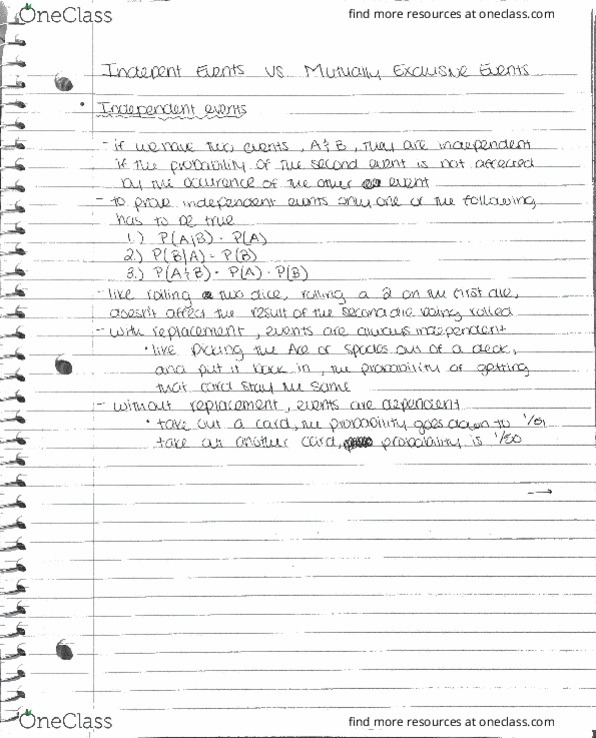 OneClass
find more resources at oneclass.com
Indepent Events vs Mutually Exclusive Events
• Independent events
- if we have two events, A & B, they are independent
if the probability of the second event is not affected
by the occurence of the other event
- to prove independent events only one of the following
has to be true
1.) P(A|B) = P(A)
2.) P(B|A) = P(B)
3.) P(A & B) = P(A) · P(B)
- like rolling two dice, rolling a 2 on the first die,
doesn't affect the result of the second die being rolled
- with replacement, events are always independent
• like picking the Ace of spades out of a deck,
and put it back in, the probability of getting
that card stay the same
- without replacement, events are dependent
• take out a card, the probability goes down to 1/51
take out another card, probability is 1/50
→
OneClass
find more resources at oneclass.com